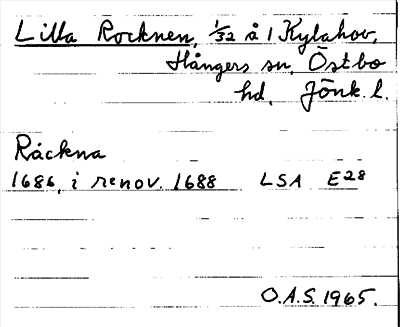 Lilla Rocknen, 1/32 å 1 Kylahov,
Hångers sn, Östbo
hd, Jönk. l.
Råckna
1686, i renov. 1688 LSA E28
O.A.S. 1965.